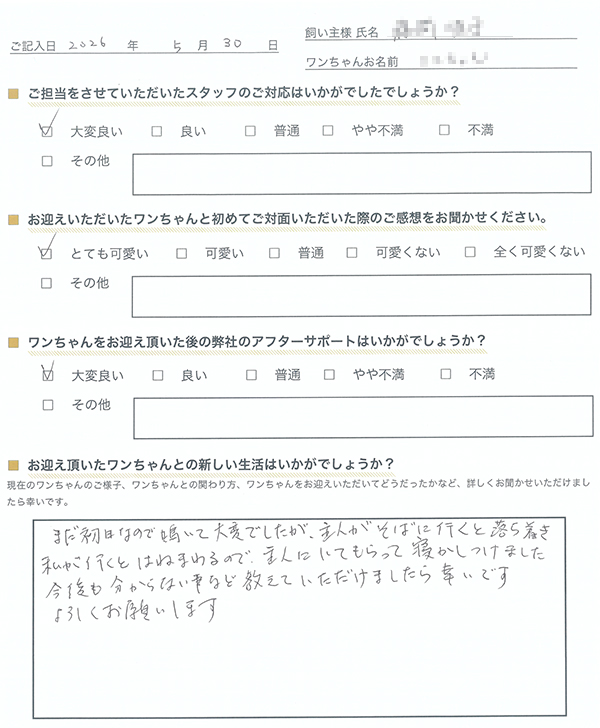 ご記入日 2026 年 5 月 30 日
飼い主様 氏名
ワンちゃんお名前
■ ご担当をさせていただいたスタッフのご対応はいかがでしたでしょうか？
☑ 大変良い □ 良い □ 普通 □ やや不満 □ 不満
□ その他
■ お迎えいただいたワンちゃんと初めてご対面いただいた際のご感想をお聞かせください。
☑ とても可愛い □ 可愛い □ 普通 □ 可愛くない □ 全く可愛くない
□ その他
■ ワンちゃんをお迎え頂いた後の弊社のアフターサポートはいかがでしょうか？
☑ 大変良い □ 良い □ 普通 □ やや不満 □ 不満
□ その他
■ お迎え頂いたワンちゃんとの新しい生活はいかがでしょうか？
現在のワンちゃんのご様子、ワンちゃんとの関わり方、ワンちゃんをお迎えいただいてどうだったかなど、詳しくお聞かせいただけまし
たら幸いです。
まだ初日なので鳴いて大変でしたが、主人がそばに行くと落ち着き
私が行くとはねまわるので、主人にいてもらって寝かしつけました
今後も分からない事など教えていただけましたら幸いです
よろしくお願いします